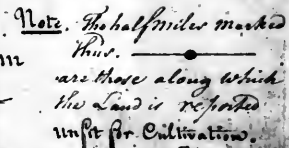 Note. The half miles marked
thus.
are those along which
the Land is reported
unfit for Cultivation.